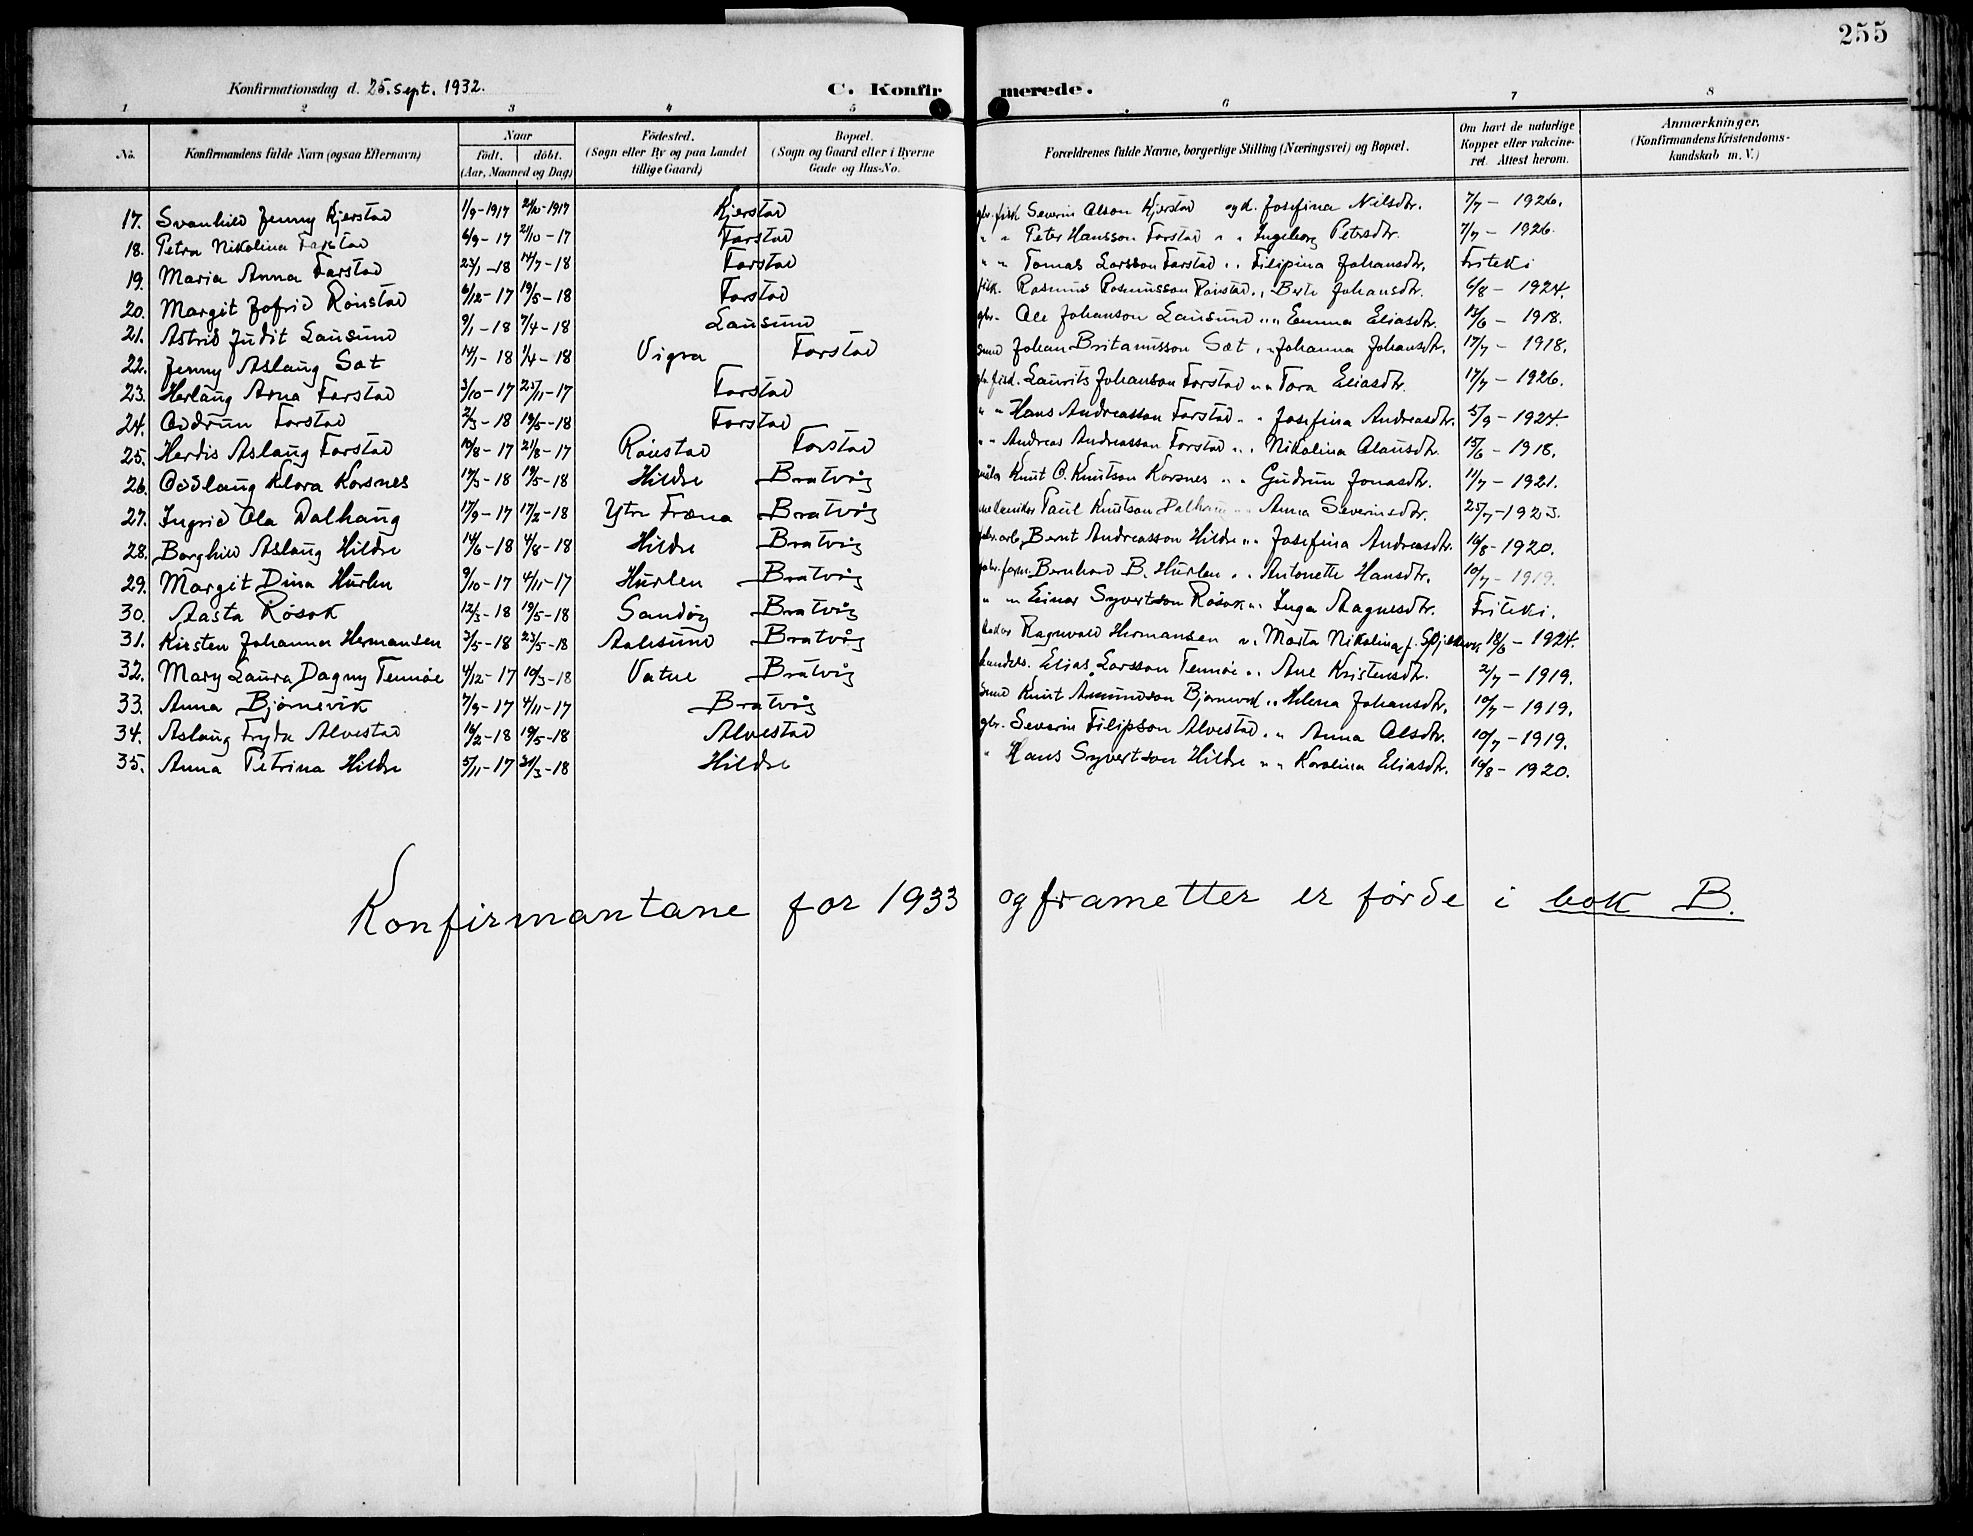 255
Konfirmationsdag d. 25. sept. 1932. C. Konfirmerede.
1 2 3 4 5 6 7 8
No. Konfirmandens fulde Navn (ogsaa Efternavn) Naar födt. döbt. (Aar, Maaned og Dag) Födested. (Sogn eller By og paa Landet tillige Gaard) Bopæl. (Sogn og Gaard eller i Byerne Gade og Hus-No. Forældrenes fulde Navne, borgerlige Stilling (Næringsvei) og Bopæl. Om havt de naturlige Kopper eller vakcineret. Attest herom. Anmærkninger. (Konfirmandens Kristendomskundskab m. V.)
17. Svanhild Jenny Kjerstad 1/9-1917 -1917 Kjerstad gbr. fisk Severin Olson Kjerstad og k. Josefina Nilsdtr. 7/7 - 1926.
18. Petra Nikolina Farstad 6/9-17 21/10-17 Farstad " " Peter Hansson Farstad " " Ingeborg Petersdtr. 7/7 - 1926.
19. Maria Anna Farstad 23/1-18 14/7-18 Farstad " " Tomas Larsson Farstad " " Filipina Johansdtr. Friteki
20. Margit Jofrid Rønstad 6/12-17 19/5-18 Farstad fisk. Rasmus Rasmusson Rønstad " " Berte Johansdtr. 6/8 - 1924.
21. Astrid Judit Lausund 9/1-18 7/4-18 Lausund gbr. Ole Johanson Lausund " " Emma Eliasdtr. 15/6 - 1918.
22. Jenny Aslaug Sæt 14/1-18 1/4-18 Vigra Farstad smed Johan Britanusson Sæt " " Johanna Johansdtr. 17/7 - 1918.
23. Herlaug Arna Farstad 3/10-17 25/11-17 Farstad gbr. fisk. Laurits Johanson Farstad " " Tora Eliasdtr. 17/7 - 1926.
24. Oddrun Farstad 2/3-18 19/5-18 Farstad " " Hans Andreasson Farstad " " Josefina Andreasdtr. 5/9 - 1924.
25. Herdis Aslaug Farstad 10/8-17 21/8-17 Rønstad Farstad " " Andreas Andreasson Farstad " " Nikolina Olausdtr. 15/6 - 1918.
26. Oddlaug Klara Korsnes 17/3-18 19/5-18 Hildre Bratvåg måler Knut O. Knutson Korsnes " " Gudrun Jonasdtr. 11/7 - 1921.
27. Ingrid Ola Dalhaug 17/9-17 17/2-18 Ytre Fræna Bratvåg mekaniker Paul Knutson Dalhaug " " Anna Severinsdtr. 25/7-1923.
28. Borghild Aslaug Hildre 14/6-18 4/8-18 Hildre Bratvåg fabr. arb. Bernt Andreasson Hildre " " Josefina Andreasdtr. 16/8-1920.
29. Margit Dina Hurlen 9/10-17 4/11-17 Hurlen Bratvåg fabr. form. Bernhard B. Hurlen " " Antonette Hansdtr. 10/7 - 1919.
30. Aasta Røsok 12/3-18 19/5-18 Sandøy Bratvåg " " Einar Syvertson Røsok " " Inga Magnesdtr. Friteki.
31. Kirsten Johanna Hermansen 3/5-18 23/5-18 Aalesund Bratvåg Ragnvald Hermansen " " Marta Nikolina f. 18/6 - 1924.
32. Mary Laura Dagny Tennøe 4/12-17 10/3-18 Vatne Bratvåg handels. Elias Larsson Tennøe " " Ane Kristensdtr. 2/7 - 1919.
33. Anna Bjørnevik 7/9-17 4/11-17 Bratvåg smed Knut Amundson Bjørnevik " " Helena Johansdtr. 10/7 - 1919.
34. Aslaug Fryda Alvestad 16/2-18 19/5-18 Alvestad gbr. Severin Filipson Alvestad " " Anna Olsdtr. 10/7 - 1919.
35. Anna Petrina Hildre 5/11-17 31/3-18 Hildre " Hans Syvertson Hildre " " Karolina Eliasdtr. 16/8 - 1920.
Konfirmantane for 1933 og frametter er førde i bok B.